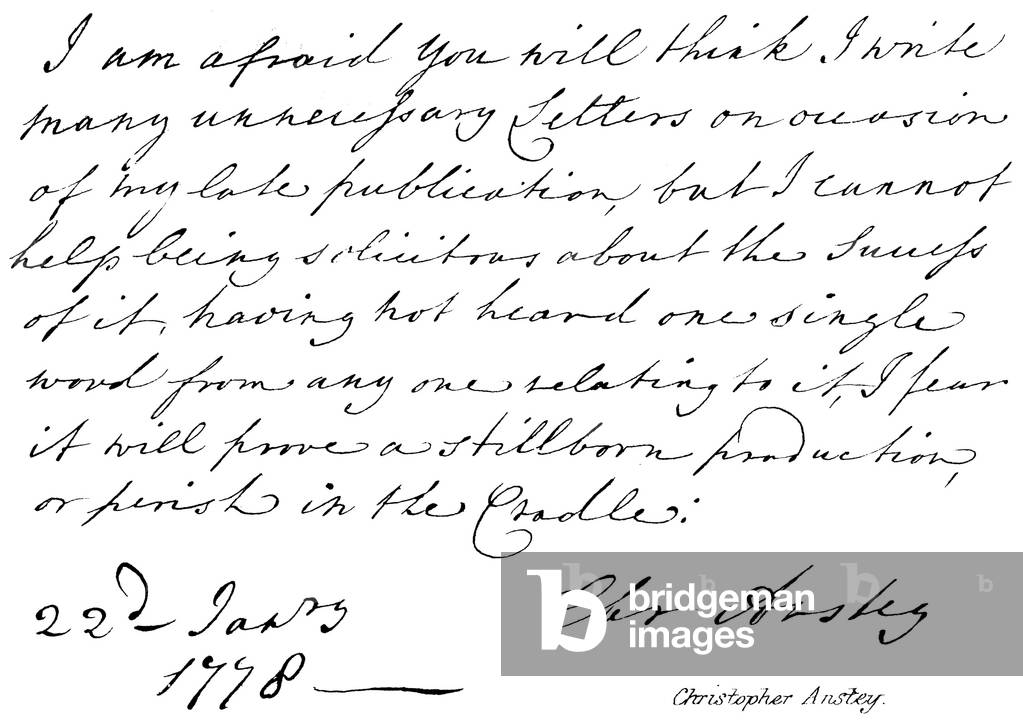 I am afraid you will think I write
many unnecessary Letters on occasion
of my late publication, but I cannot
help being solicitous about the Success
of it, having not heard one single
word from any one relating to it, I fear
it will prove a stillborn production,
or perish in the Cradle:
22d Janry
1778
Chr Anstey
bridgeman
images
Christopher Anstey.